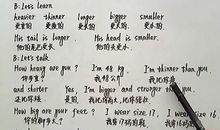 B: Let's learn
heavier thinner longer bigger smaller
更重的 更瘦的 更长的 更大的 更小的
His tail is longer. His head is smaller.
他的尾巴更长 他的头更小.
B: Let's talk
How heavy are you? I'm 48 kg I'm thinner than you
你多重? 我48公斤 我比你瘦
and shorter Yes, I'm bigger and stronger than you.
还比你矮 是的 我比你大,比你壮
How big are your feet? I wear size 17. I wear size
你的脚多大? 我穿17码的鞋.